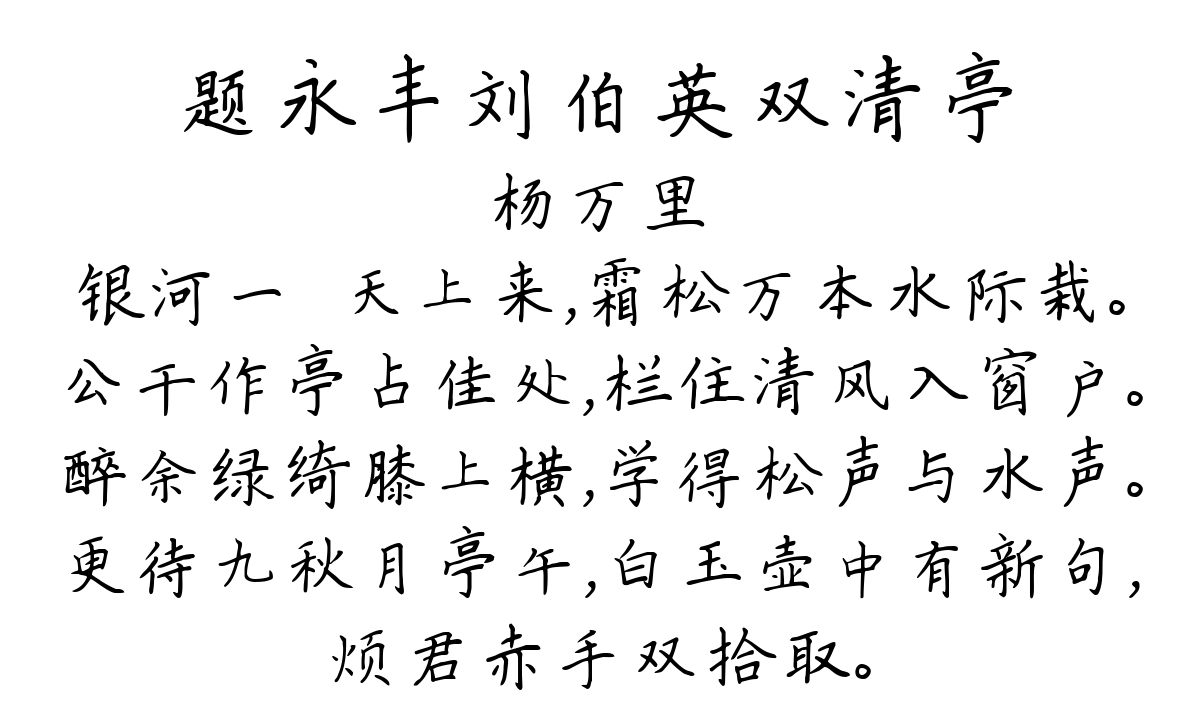 题永丰刘伯英双清亭
杨万里
银河一 天上来,霜松万本水际栽。
公干作亭占佳处,栏住清风入窗户。
醉余绿绮膝上横,学得松声与水声。
更待九秋月亭午,白玉壶中有新句,
烦君赤手双拾取。